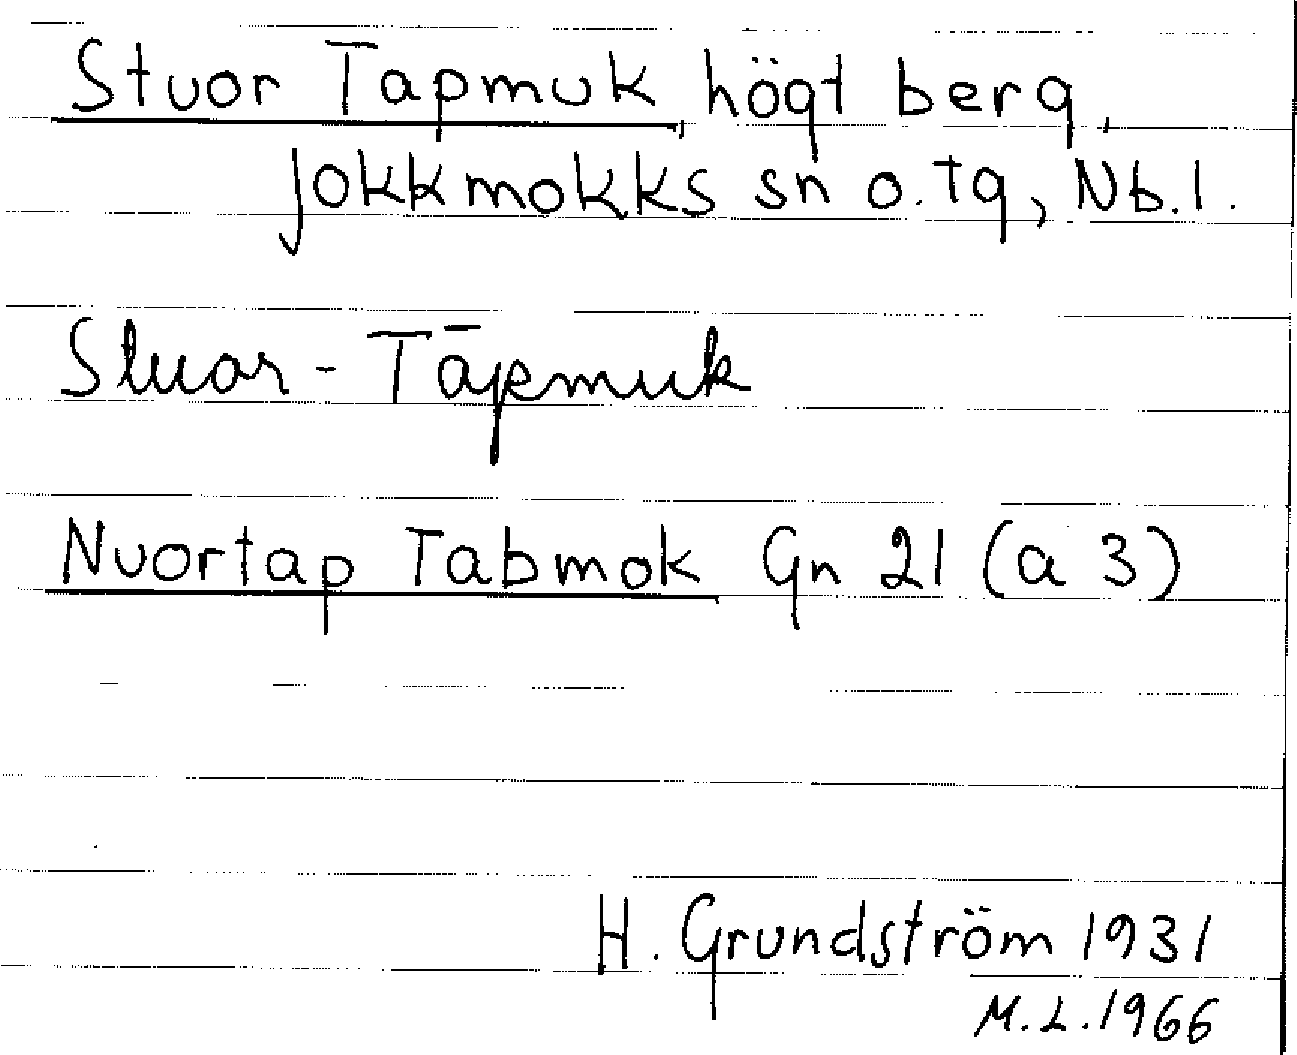 Stuor Tapmuk, högt berg,
Jokkmokks sn o. tg, Nb. l.
Stuor - Tāpmuk
Nuortap Tabmok Gn 21 (a 3)
H. Grundström 1931
M. L. 1966